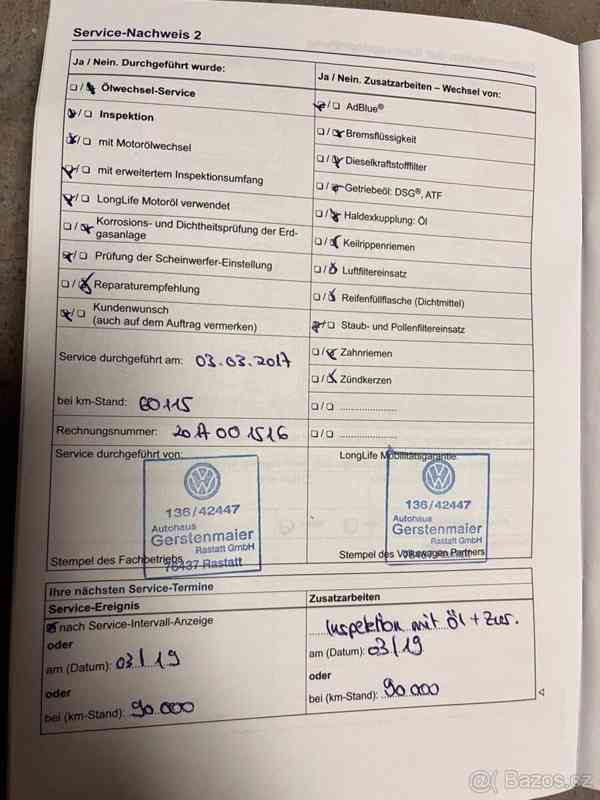 Service-Nachweis 2
Ja / Nein. Durchgeführt wurde:
❏ / ❏ Ölwechsel-Service
❏ / ❏ Inspektion
❏ / ❏ mit Motorölwechsel
❏ / ❏ mit erweitertem Inspektionsumfang
❏ / ❏ LongLife Motoröl verwendet
❏ / ❏ Korrosions- und Dichtheitsprüfung der Erd-
gasanlage
❏ / ❏ Prüfung der Scheinwerfer-Einstellung
❏ / ❏ Reparaturempfehlung
❏ / ❏ Kundenwunsch
(auch auf dem Auftrag vermerken)
Service durchgeführt am: 03.03.2017
bei km-Stand: 60115
Rechnungsnummer: 20A001516
Service durchgeführt von:
136/42447
Autohaus
Gerstenmaier
Rastatt GmbH
76437 Rastatt
Stempel des Fachbetriebs
Ja / Nein. Zusatzarbeiten – Wechsel von:
❏ / ❏ AdBlue®
❏ / ❏ Bremsflüssigkeit
❏ / ❏ Dieselkraftstofffilter
❏ / ❏ Getriebeöl: DSG®, ATF
❏ / ❏ Haldexkupplung: Öl
❏ / ❏ Keilrippenriemen
❏ / ❏ Luftfiltereinsatz
❏ / ❏ Reifenfüllflasche (Dichtmittel)
❏ / ❏ Staub- und Pollenfiltereinsatz
❏ / ❏ Zahnriemen
❏ / ❏ Zündkerzen
❏ / ❏ ......................
❏ / ❏ ......................
LongLife Mobilitätsgarantie:
136/42447
Autohaus
Gerstenmaier
Rastatt GmbH
Stempel des Volkswagen Partners
Ihre nächsten Service-Termine
Service-Ereignis
nach Service-Intervall-Anzeige
oder
am (Datum): 03/19
oder
bei (km-Stand): 90.000
Zusatzarbeiten
Inspektion mit Öl + Zus.
am (Datum): 03/19
oder
bei (km-Stand): 90.000
Bazos.cz